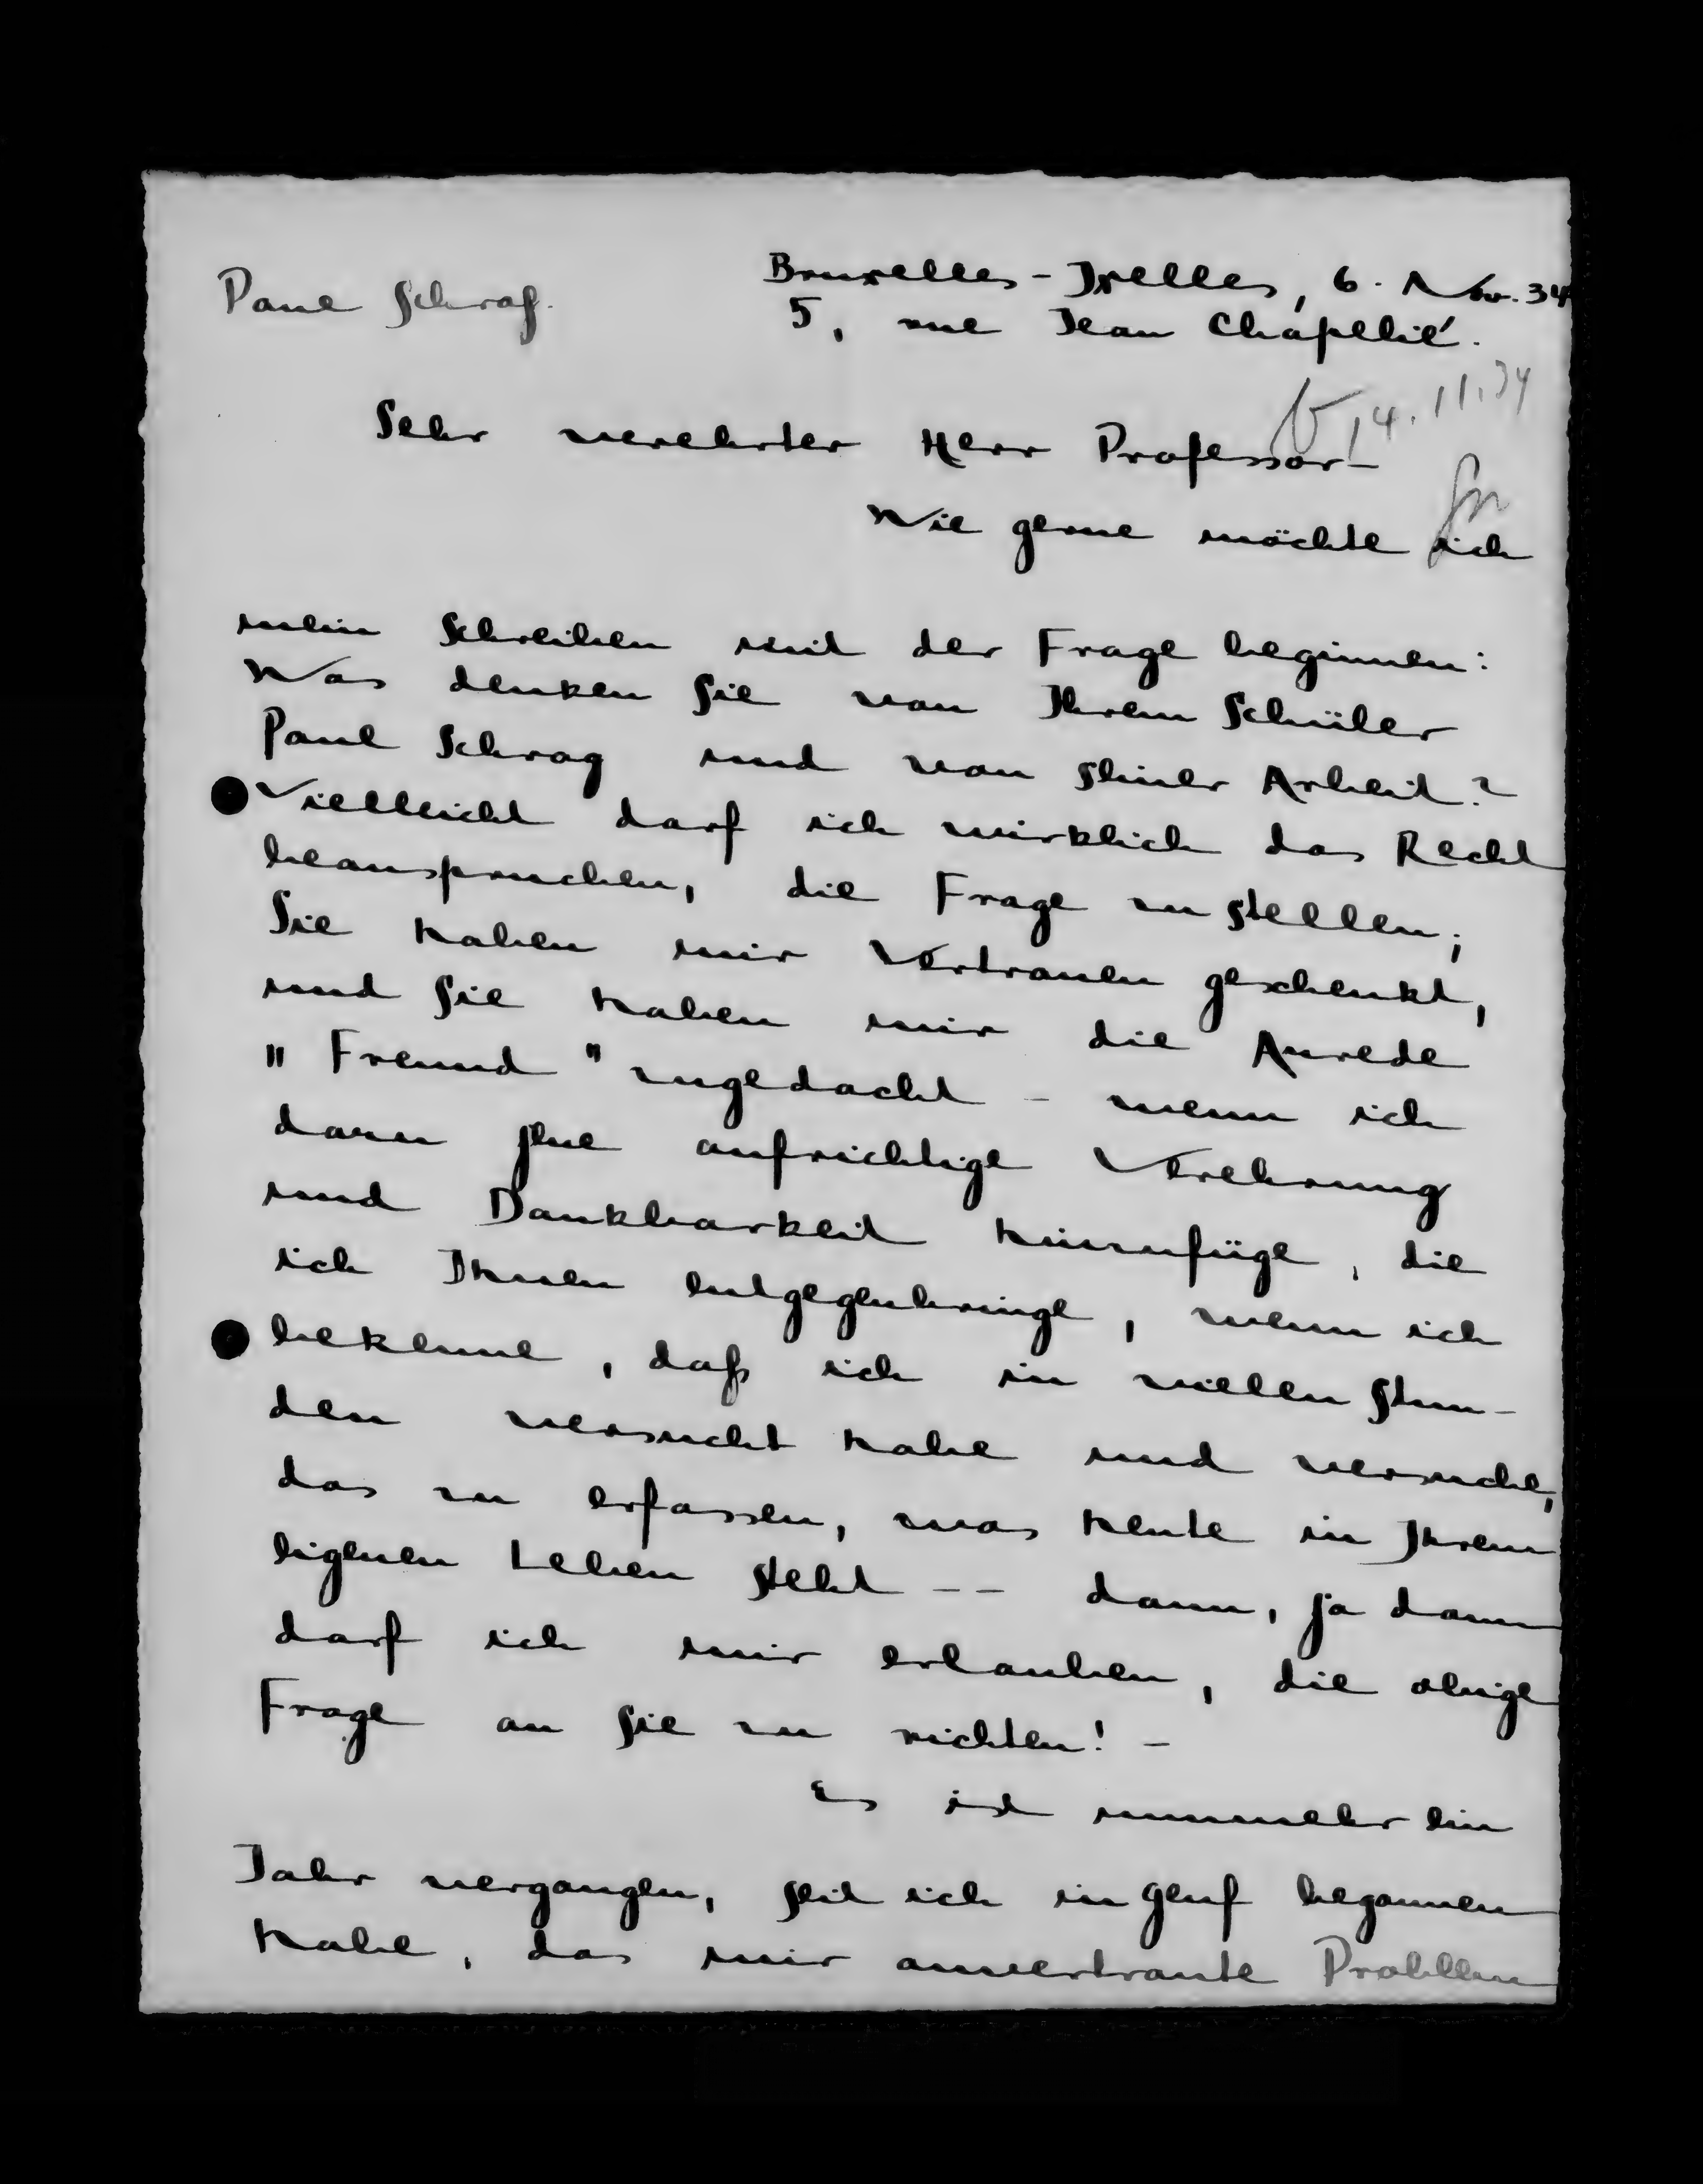 Bruxelles-Ixelles, 6. Nov. 34
Paul Schrag.
5, rue Jean Chapelié.
14.11.34
Sehr verehrter Herr Professor –
Wie gerne möchte ich
mein Schreiben mit der Frage beginnen:
Was denken Sie von Ihrem Schüler
Paul Schrag und von seiner Arbeit?
Vielleicht darf ich wirklich das Recht
beanspruchen, die Frage zu stellen;
Sie haben mir Vertrauen geschenkt,
und Sie haben mir die Anrede
„Freund" zugedacht – wenn ich
dazu jene aufrichtige Verehrung
und Dankbarkeit hinzufüge, die
ich Ihnen entgegenbringe, wenn ich
bekenne, daß ich in vielen Stun-
den versucht habe und versuche,
das zu erfassen, was heute in Ihrem
eigenen Leben steht -- dann, ja dann
darf ich mir erlauben, die obige
Frage an Sie zu richten! –
Es ist nunmehr ein
Jahr vergangen, seit ich in Genf begonnen
habe, das mir anvertraute Problem